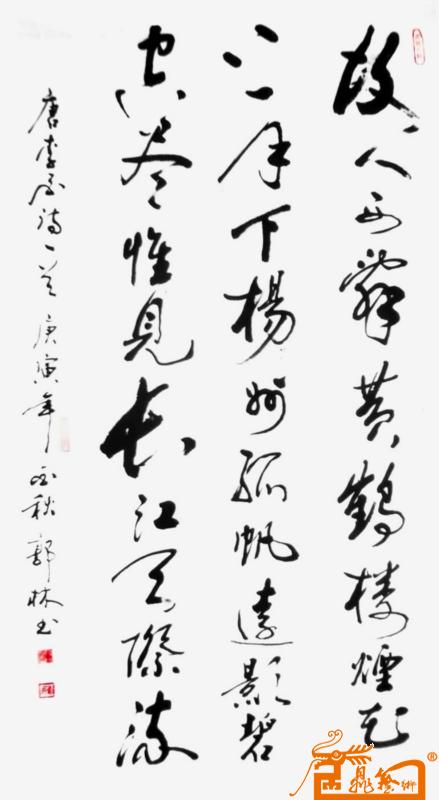 故人西辭黄鶴楼煙花
三月下楊州孤帆遠影碧
空尽惟見長江天際流
唐李白诗一首 庚寅年 秋 郭林书